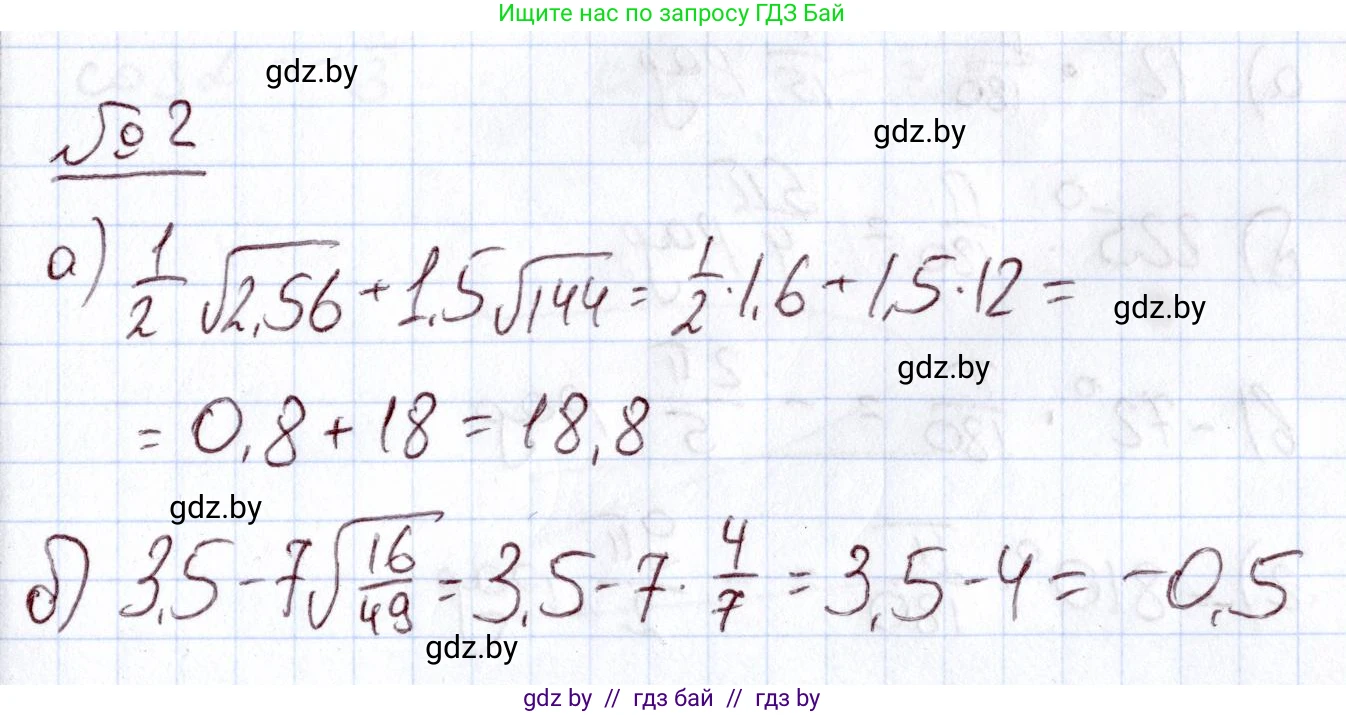 Ищите нас по запросу ГДЗ Бай
gdz.by
№ 2
gdz.by
а) 1/2 √2,56 + 1,5 √144 = 1/2 · 1,6 + 1,5 · 12 =
gdz.by
gdz.by
= 0,8 + 18 = 18,8
gdz.by
б) 3,5 - 7 √16/49 = 3,5 - 7 · 4/7 = 3,5 - 4 = -0,5
gdz.by
gdz by // гдз бай // гдз by